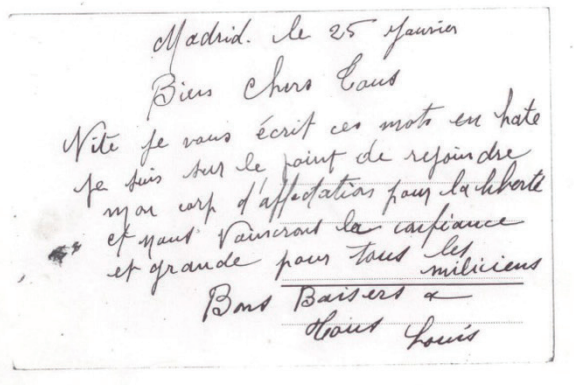 Madrid. le 25 Janvier
Biens Chers Tous
Vite je vous écrit ces mots en hate
je suis sur le point de rejoindre
mon corp d'affectation pour la liberte
et nous vaincrons la confiance
et grande pour tous les
miliciens
Bons Baisers a
Tous
Louis